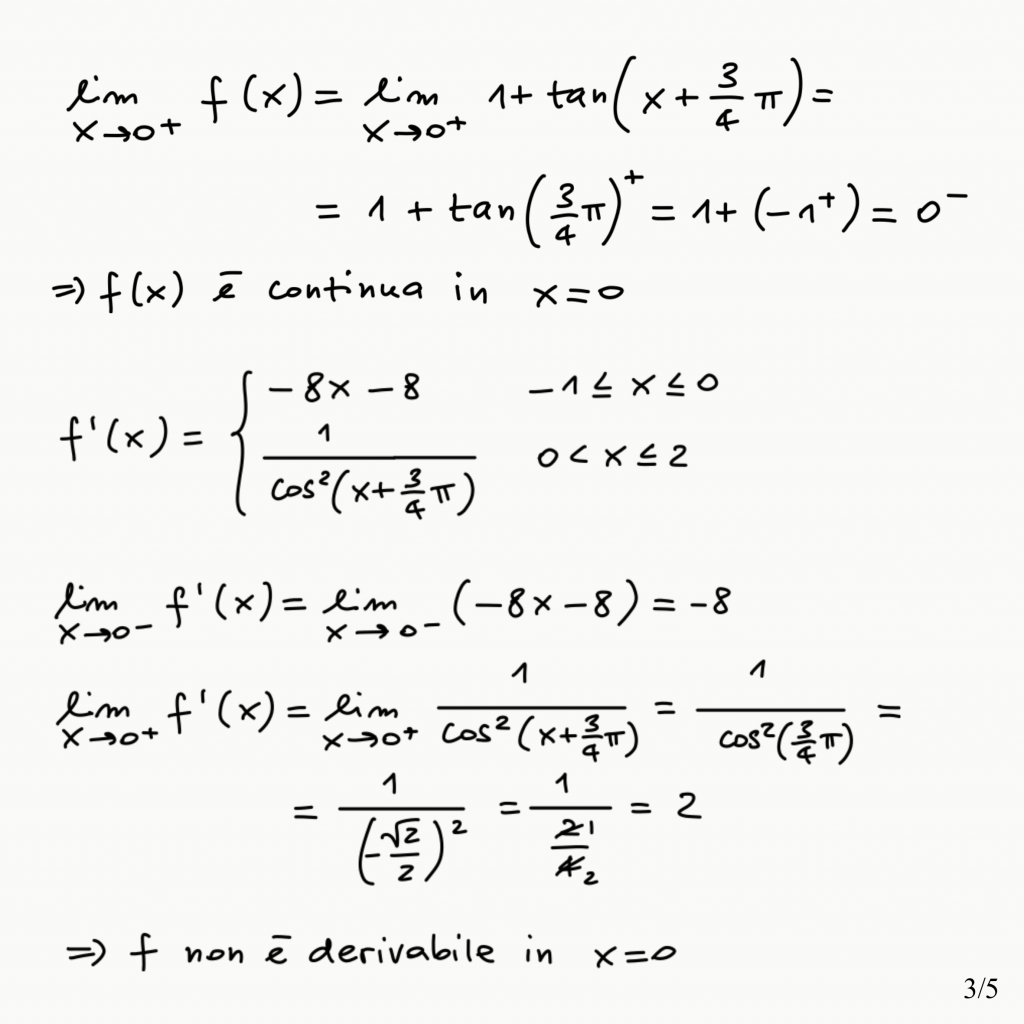 lim x→0+ f(x) = lim x→0+ 1 + tan(x + 3/4 π) =
= 1 + tan(3/4 π)⁺ = 1 + (−1⁺) = 0⁻
⇒ f(x) ē continua in x=0
f'(x) = { −8x − 8   −1 ≤ x ≤ 0
1/cos²(x + 3/4 π)   0 < x ≤ 2
lim x→0− f'(x) = lim x→0− (−8x − 8) = −8
lim x→0+ f'(x) = lim x→0+ 1/cos²(x + 3/4 π) = 1/cos²(3/4 π) =
= 1/(−√2/2)² = 1/(2 1/4 2) = 2
⇒ f non ē derivabile in x=0
3/5